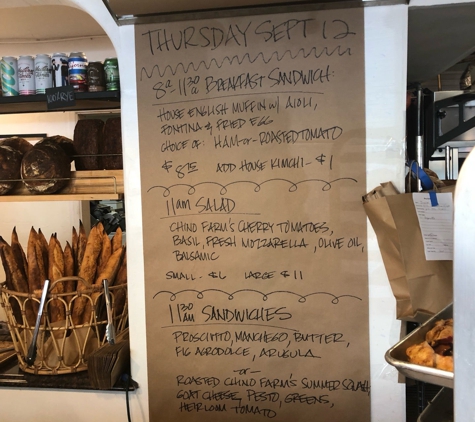 THURSDAY SEPT 12
8am-11:30a BREAKFAST SANDWICH
HOUSE ENGLISH MUFFIN W/ AIOLI,
FONTINA & FRIED EGG
CHOICE OF: HAM -or- ROASTED TOMATO
$8.75 ADD HOUSE KIMCHI - $1
11am SALAD
CHINO FARM'S CHERRY TOMATOES,
BASIL, FRESH MOZZARELLA, OLIVE OIL,
BALSAMIC
SMALL - $6 LARGE $11
11:30 AM SANDWICHES
PROSCIUTTO, MANCHEGO, BUTTER,
FIG AGRODOLCE, ARUGULA
-or-
ROASTED CHINO FARM'S SUMMER SQUASH,
GOAT CHEESE, PESTO, GREENS,
HEIRLOOM TOMATO
100% RYE